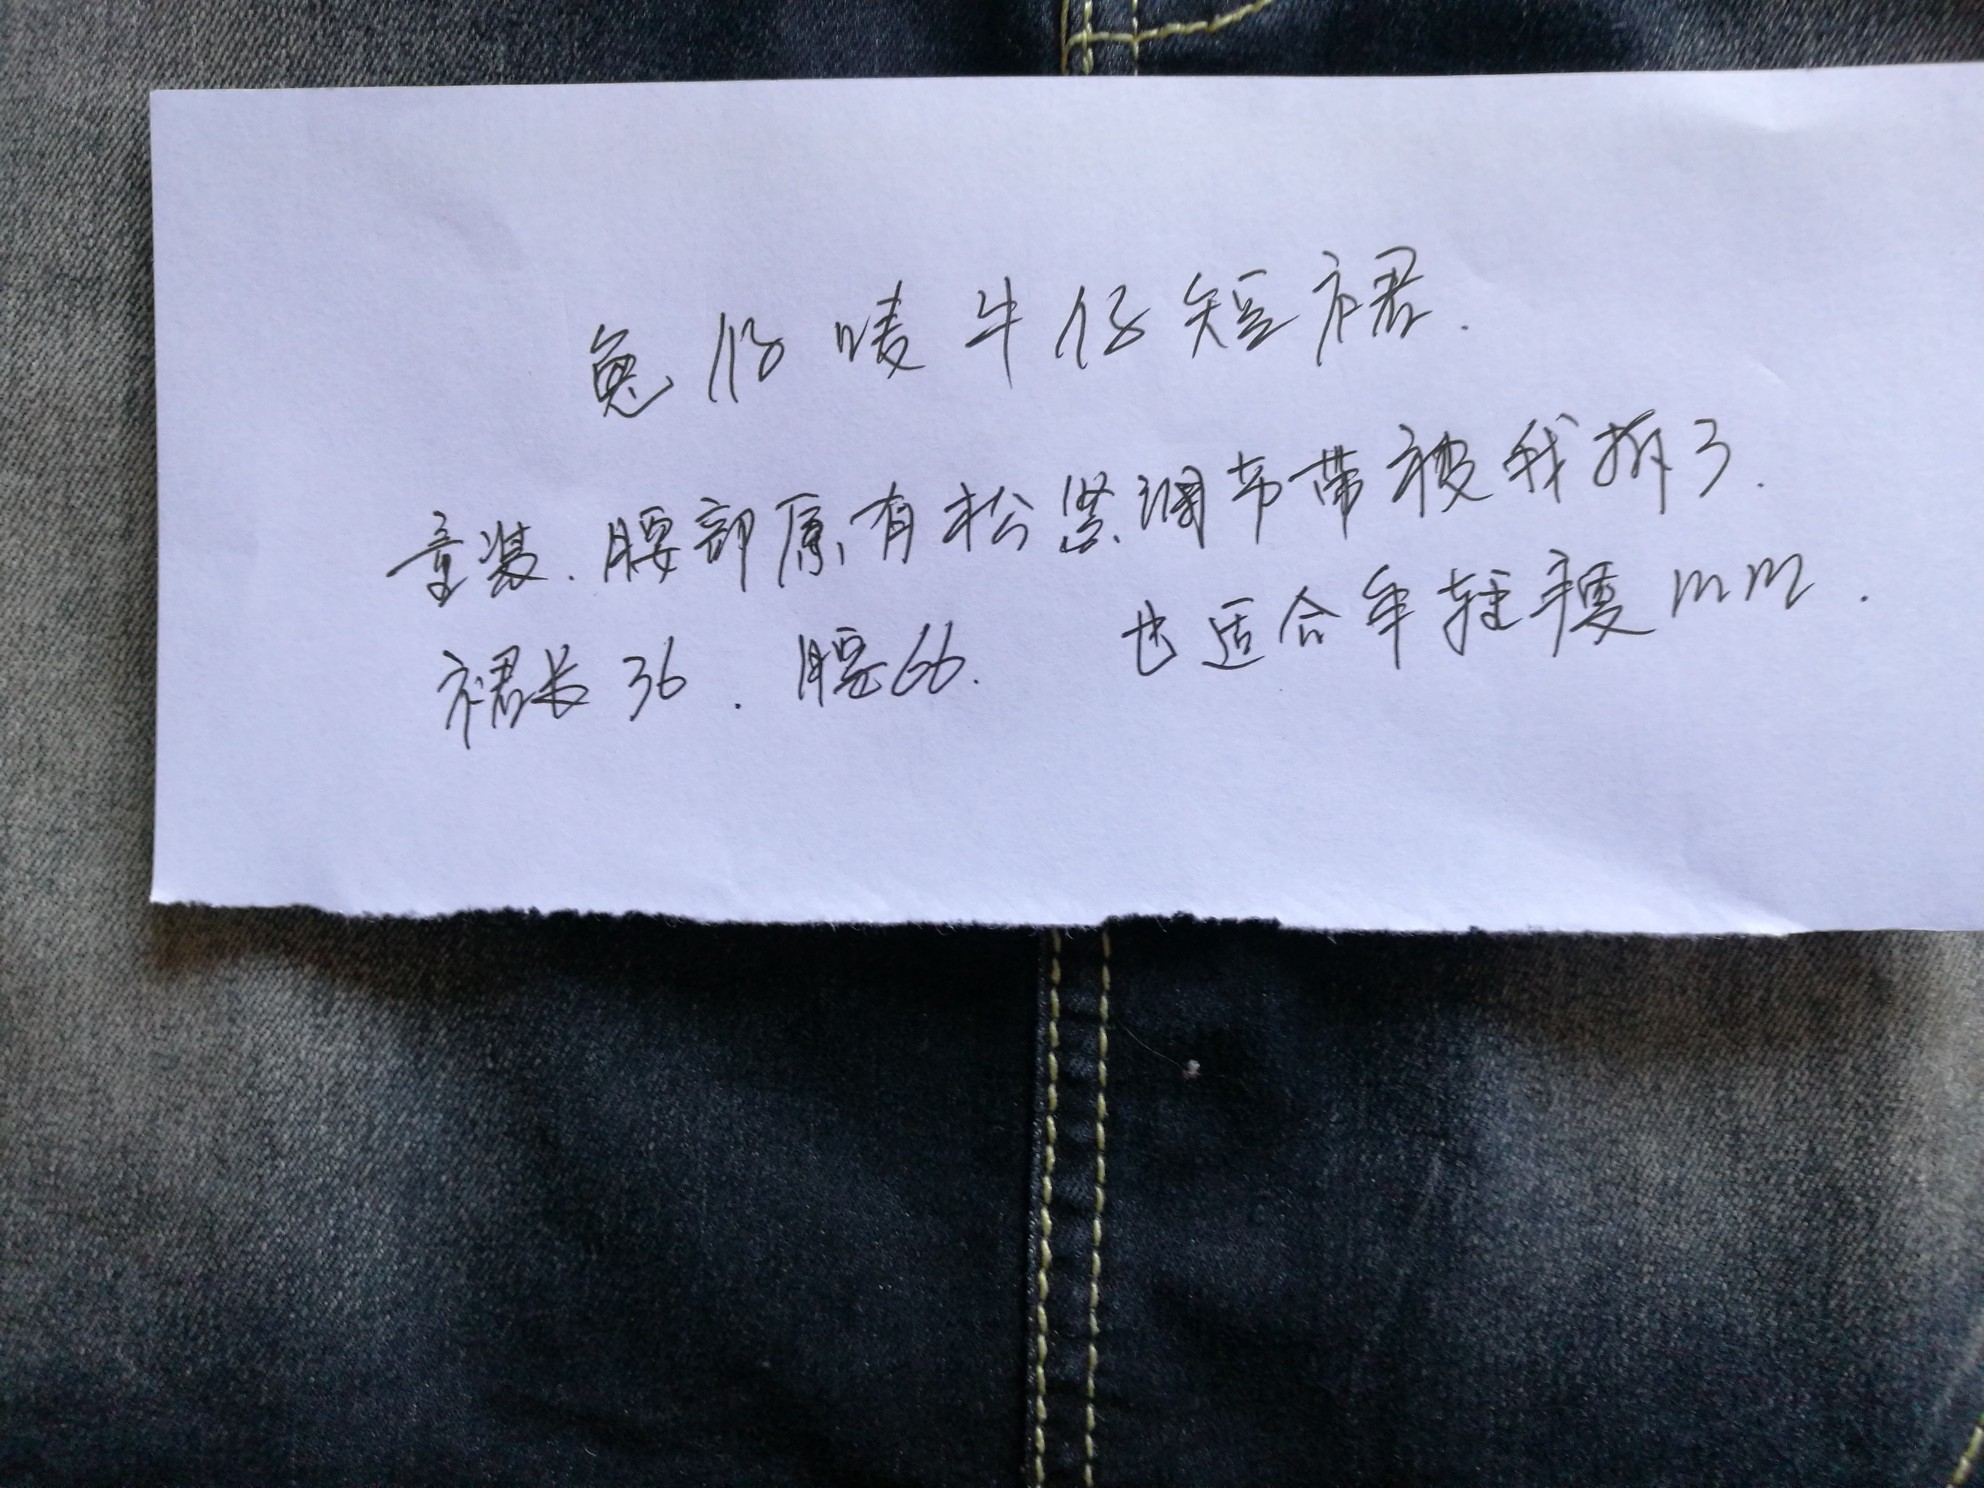 兔仔唛牛仔短裙.
童装.腰部原有松紧调节带被我拆了.
裙长36.腰66. 也适合年轻瘦mm.